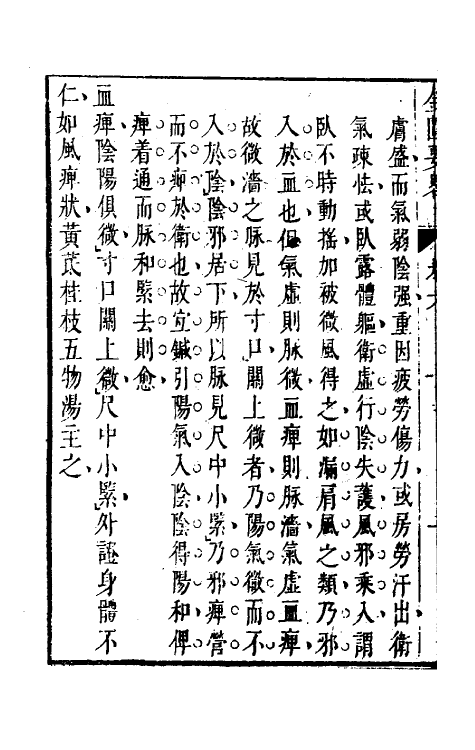 膚盛而氣弱陰强重因疲勞傷力或房勞汗出衛
氣疎怯或臥露體軀衛虛行陰失護風邪乘入謂
臥不時動搖加被微風得之如漏肩風之類乃邪
入於血也但氣虛則脉微血痺則脉濇氣虛血痺
故微濇之脉見於寸口關上微者乃陽氣微而不
入於陰陰邪居下所以脉見尺中小緊乃邪痺營
而不痺於衛也故宜鍼引陽氣入陰陰得陽和俾
痺着通而脉和緊去則愈
血痺陰陽俱微寸口關上微尺中小緊外證身體不
仁如風痺狀黃茋桂枝五物湯主之